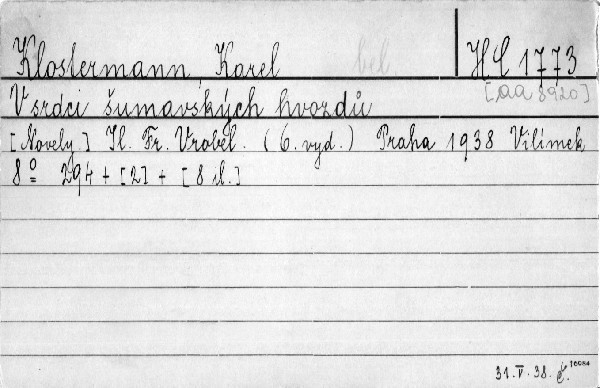 Klostermann, Karel bel HC 1773
V srdci šumavských hvozdů [aa 8920]
[Novely.] Il. Fr. Vrobel. (6. vyd.) Praha 1938 Vilímek
8° 294 + [2] + [8 il.]
31. V. 38. č. 16084